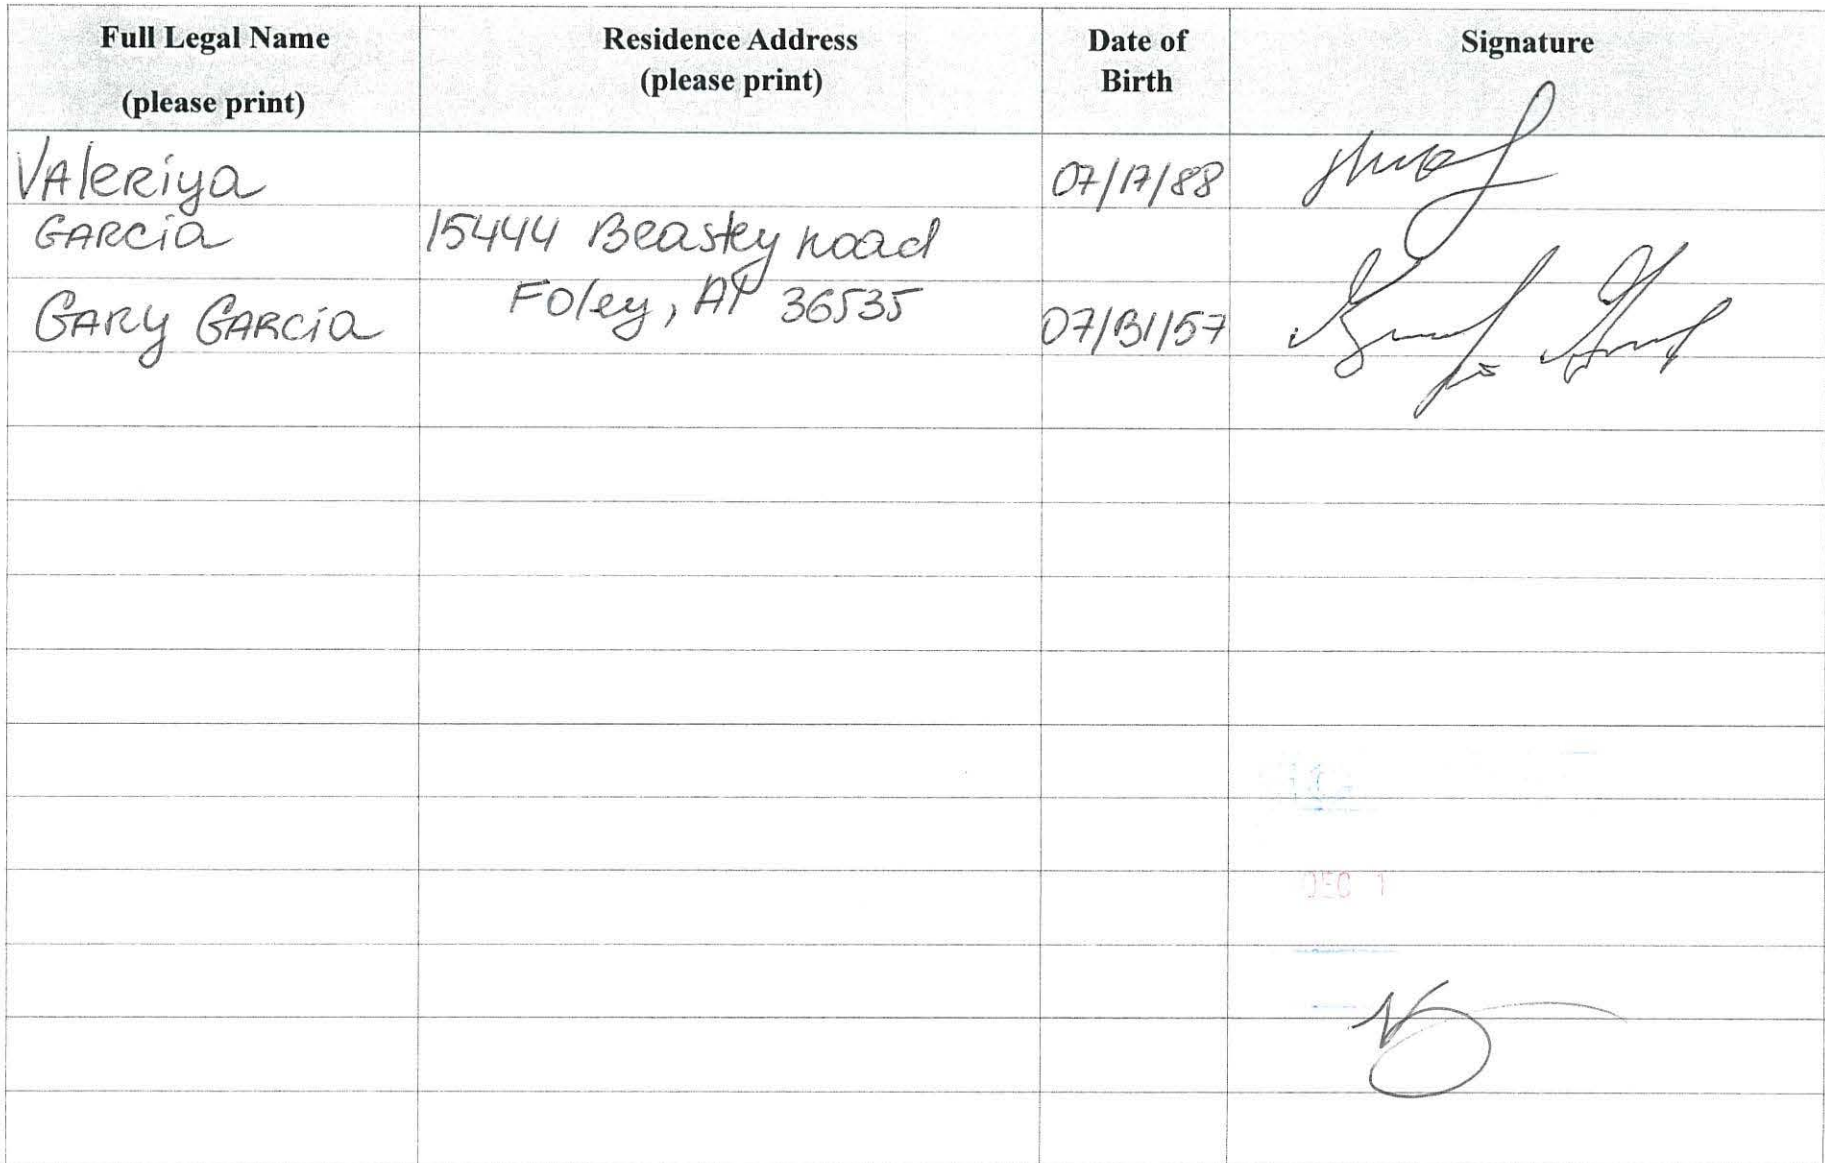 Full Legal Name
(please print)
Residence Address
(please print)
Date of
Birth
Signature
Valeriya
Garcia
07/17/88
15444 Beasley road
Foley, Al 36535
Gary Garcia
07/31/57
DEC 1